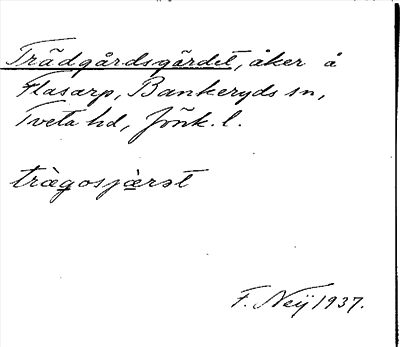 Trädgårdsgärdet, åker å
Flasarp, Bankeryds sn,
Tveta hd, Jönk. l.
trägosjærət
F. Neij 1937.